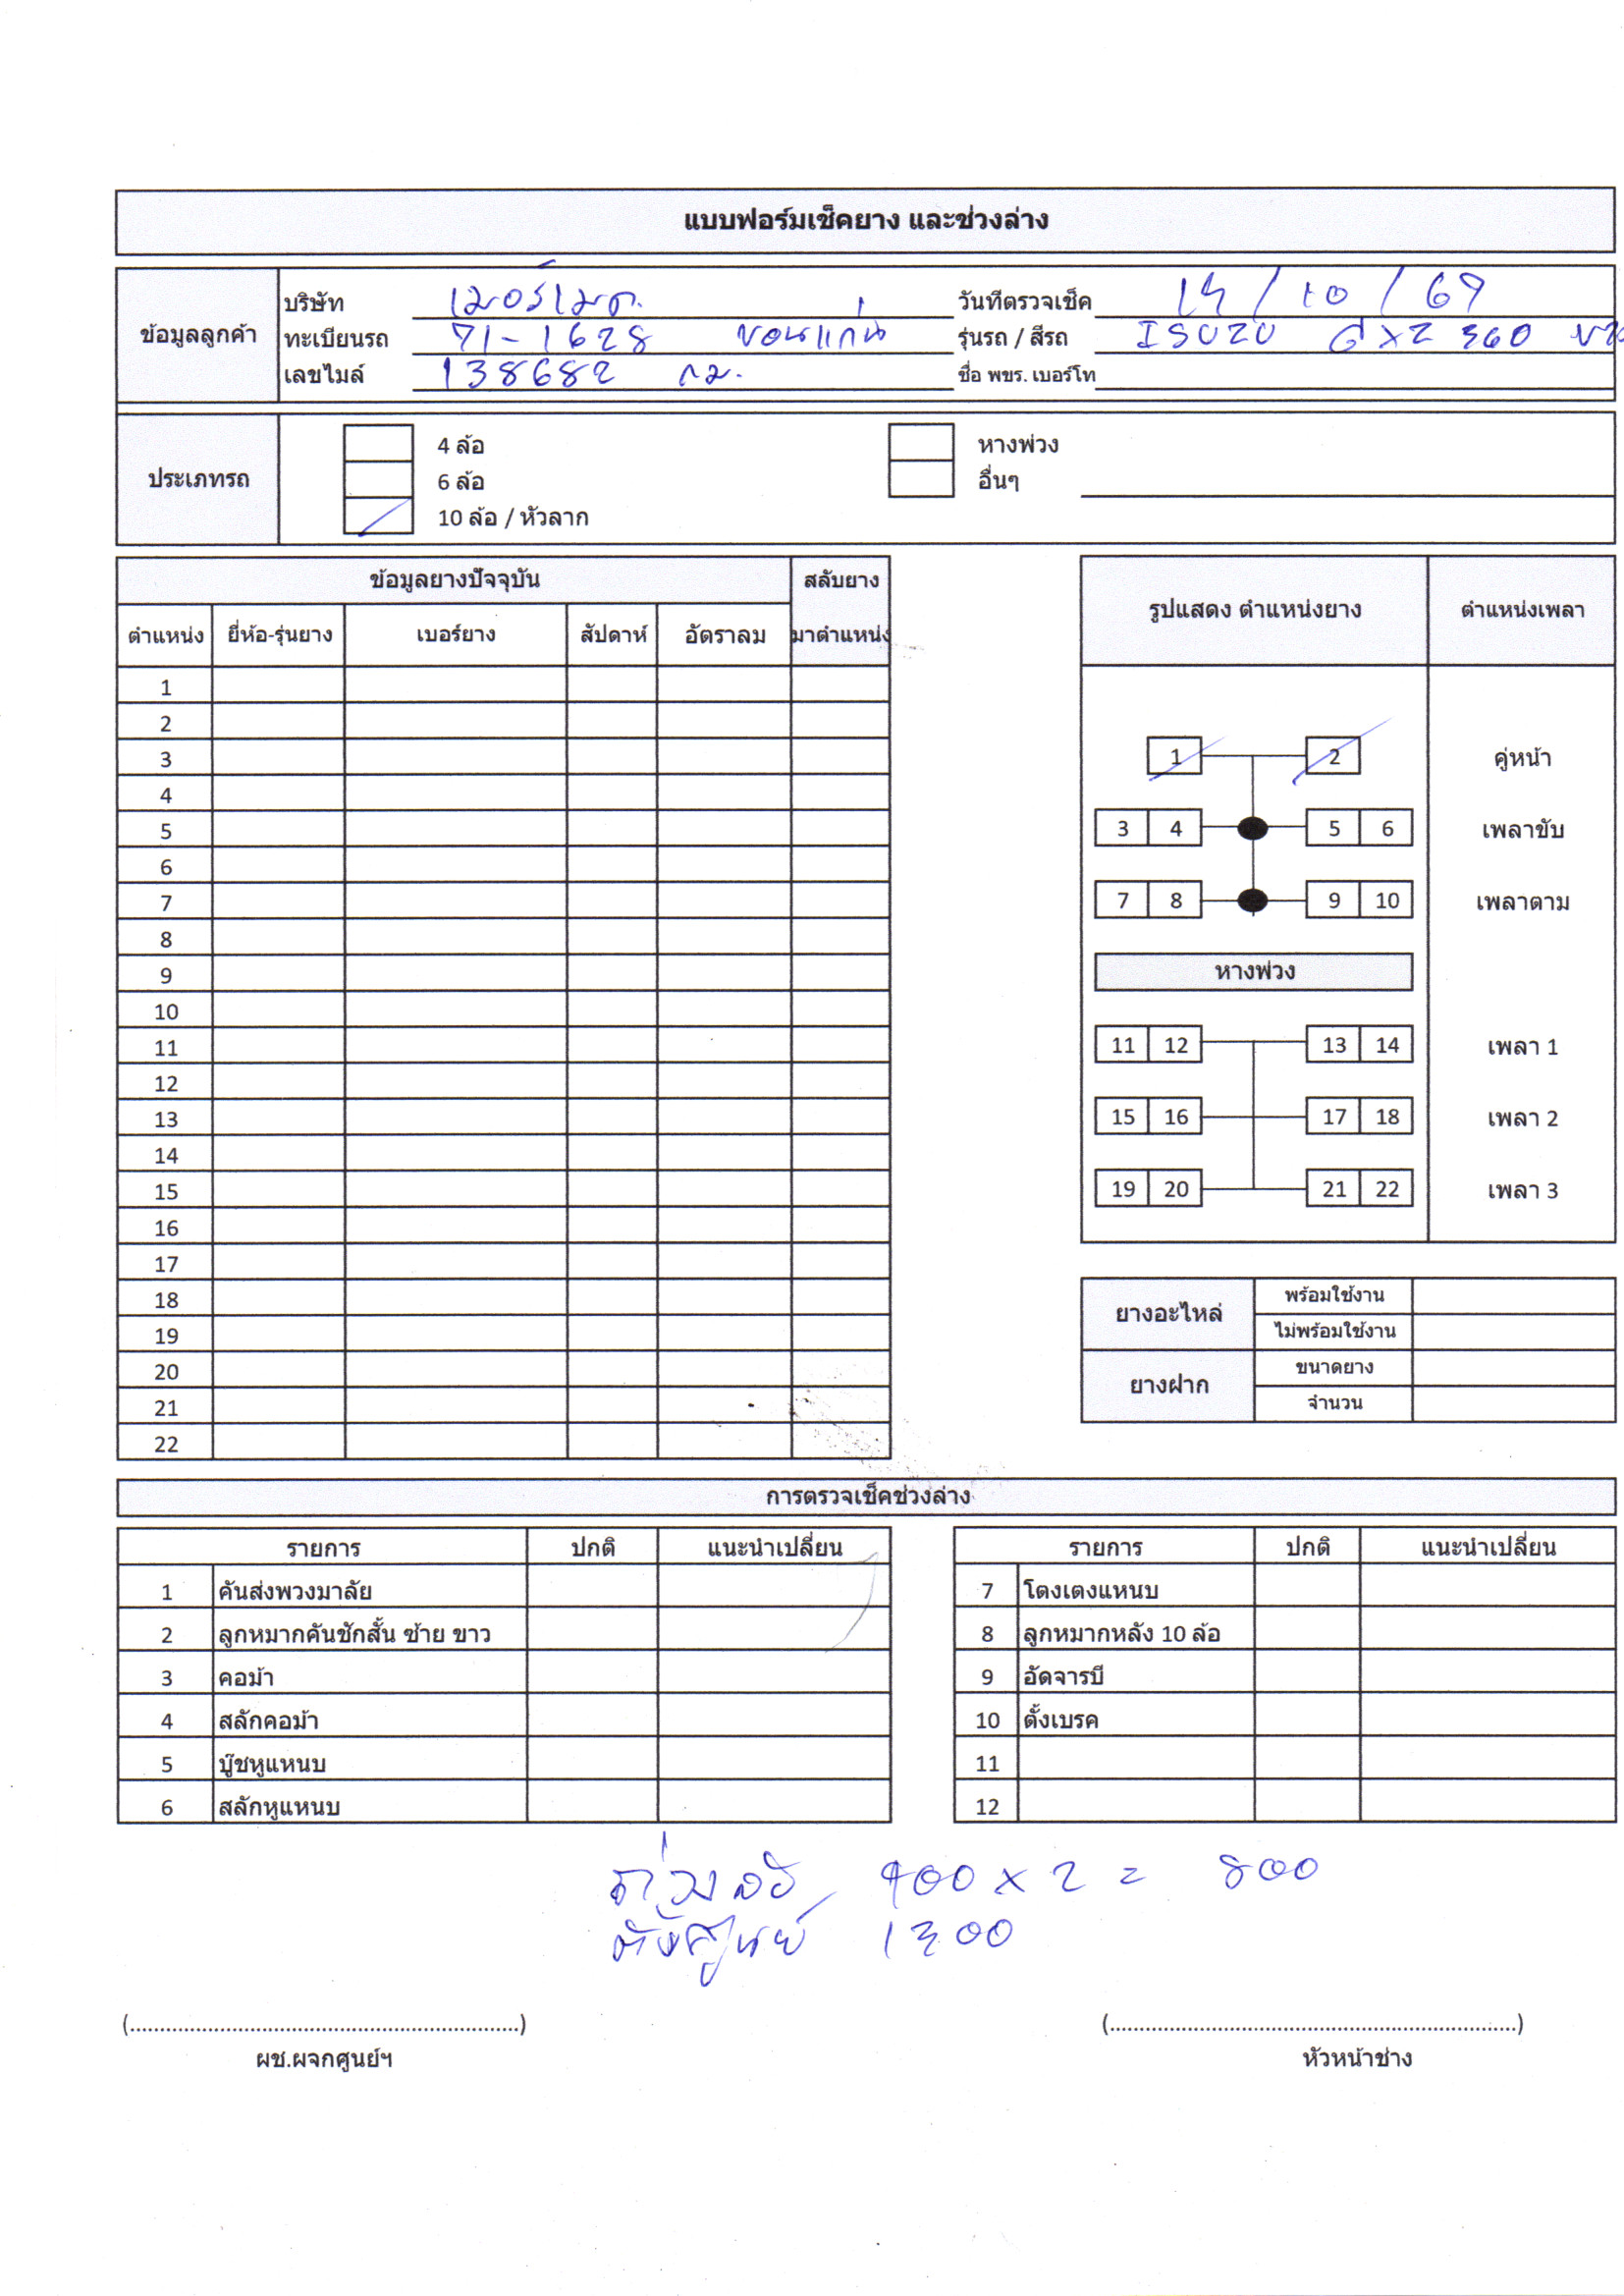 แบบฟอร์มเช็คยาง และช่วงล่าง
ข้อมูลลูกค้า
บริษัท เมอร์เมด
วันที่ตรวจเช็ค 14/10/67
ทะเบียนรถ 71-1628 ขอนแก่น
รุ่นรถ / สีรถ ISUZU 360
เลขไมล์ 138682 กม.
ชื่อ พขร. เบอร์โท
ประเภทรถ
4 ล้อ
หางพ่วง
6 ล้อ
อื่นๆ
10 ล้อ / หัวลาก
ข้อมูลยางปัจจุบัน สลับยาง
ตำแหน่ง ยี่ห้อ-รุ่นยาง เบอร์ยาง สัปดาห์ อัตราลม มาตำแหน่ง
1
2
3
4
5
6
7
8
9
10
11
12
13
14
15
16
17
18
19
20
21
22
รูปแสดง ตำแหน่งยาง ตำแหน่งเพลา
1 2 คู่หน้า
3 4 5 6 เพลาขับ
7 8 9 10 เพลาตาม
หางพ่วง
11 12 13 14 เพลา 1
15 16 17 18 เพลา 2
19 20 21 22 เพลา 3
ยางอะไหล่
พร้อมใช้งาน
ไม่พร้อมใช้งาน
ยางฝาก
ขนาดยาง
จำนวน
การตรวจเช็คช่วงล่าง
รายการ ปกติ แนะนำเปลี่ยน
1 คันส่งพวงมาลัย
2 ลูกหมากคันชักสั้น ซ้าย ขาว
3 คอม้า
4 สลักคอม้า
5 บู๊ชหูแหนบ
6 สลักหูแหนบ
รายการ ปกติ แนะนำเปลี่ยน
7 โตงเตงแหนบ
8 ลูกหมากหลัง 10 ล้อ
9 อัดจารบี
10 ตั้งเบรค
11
12
ถ่วงล้อ 400 x 2 = 800
ตั้งศูนย์ 1300
(..................................................................)
ผช.ผจกศูนย์ฯ
(.....................................................................)
หัวหน้าช่าง